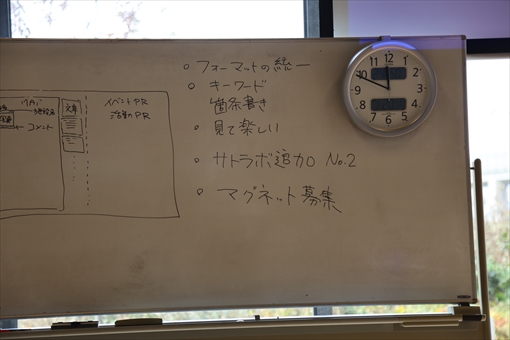 フォーマットの統一
キーワード
箇条書き
見て楽しい
サトラボ追加 No.2
マグネット募集
イベントPR
活動のPR
文章
コメント
12
1
2
3
4
5
6
7
8
9
10
11